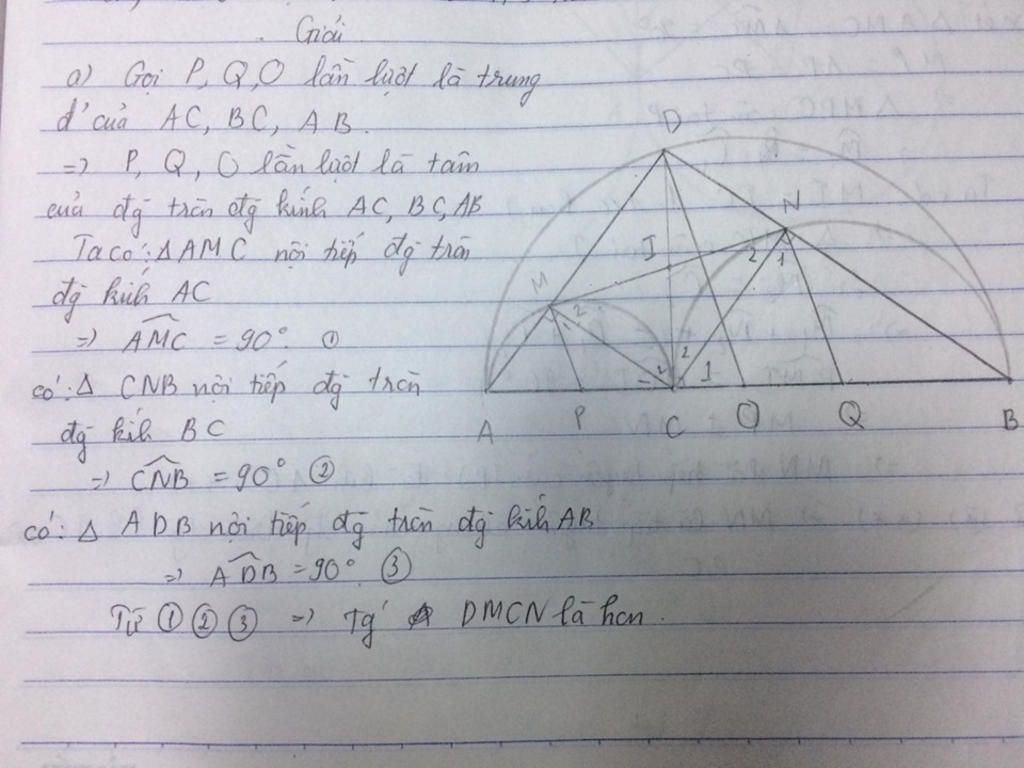 Giải
a) Gọi P, Q, O lần lượt là trung
đ' của AC, BC, AB.
=> P, Q, O lần lượt là tâm
của đg tròn đg kính AC, BC, AB
Ta có: Δ AMC nội tiếp đg tròn
đg kính AC
=> AMC = 90° ①
có: Δ CNB nội tiếp đg tròn
đg kíh BC
=> CNB = 90° ②
có: Δ ADB nội tiếp đg tròn đg kíh AB
=> ADB = 90° ③
Từ ① ② ③ => Tg' DMCN là hcn.
D
N
I
2 1
M
2
1
2
2
1
A P C O Q B